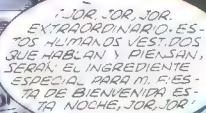 ¡JOR, JOR, JOR.
EXTRAORDINARIO. ES-
TOS HUMANOS VESTIDOS
QUE HABLAN Y PIENSAN,
SERÁN EL INGREDIENTE
ESPECIAL PARA MI FIES-
TA DE BIENVENIDA ES-
TA NOCHE, JOR, JOR!